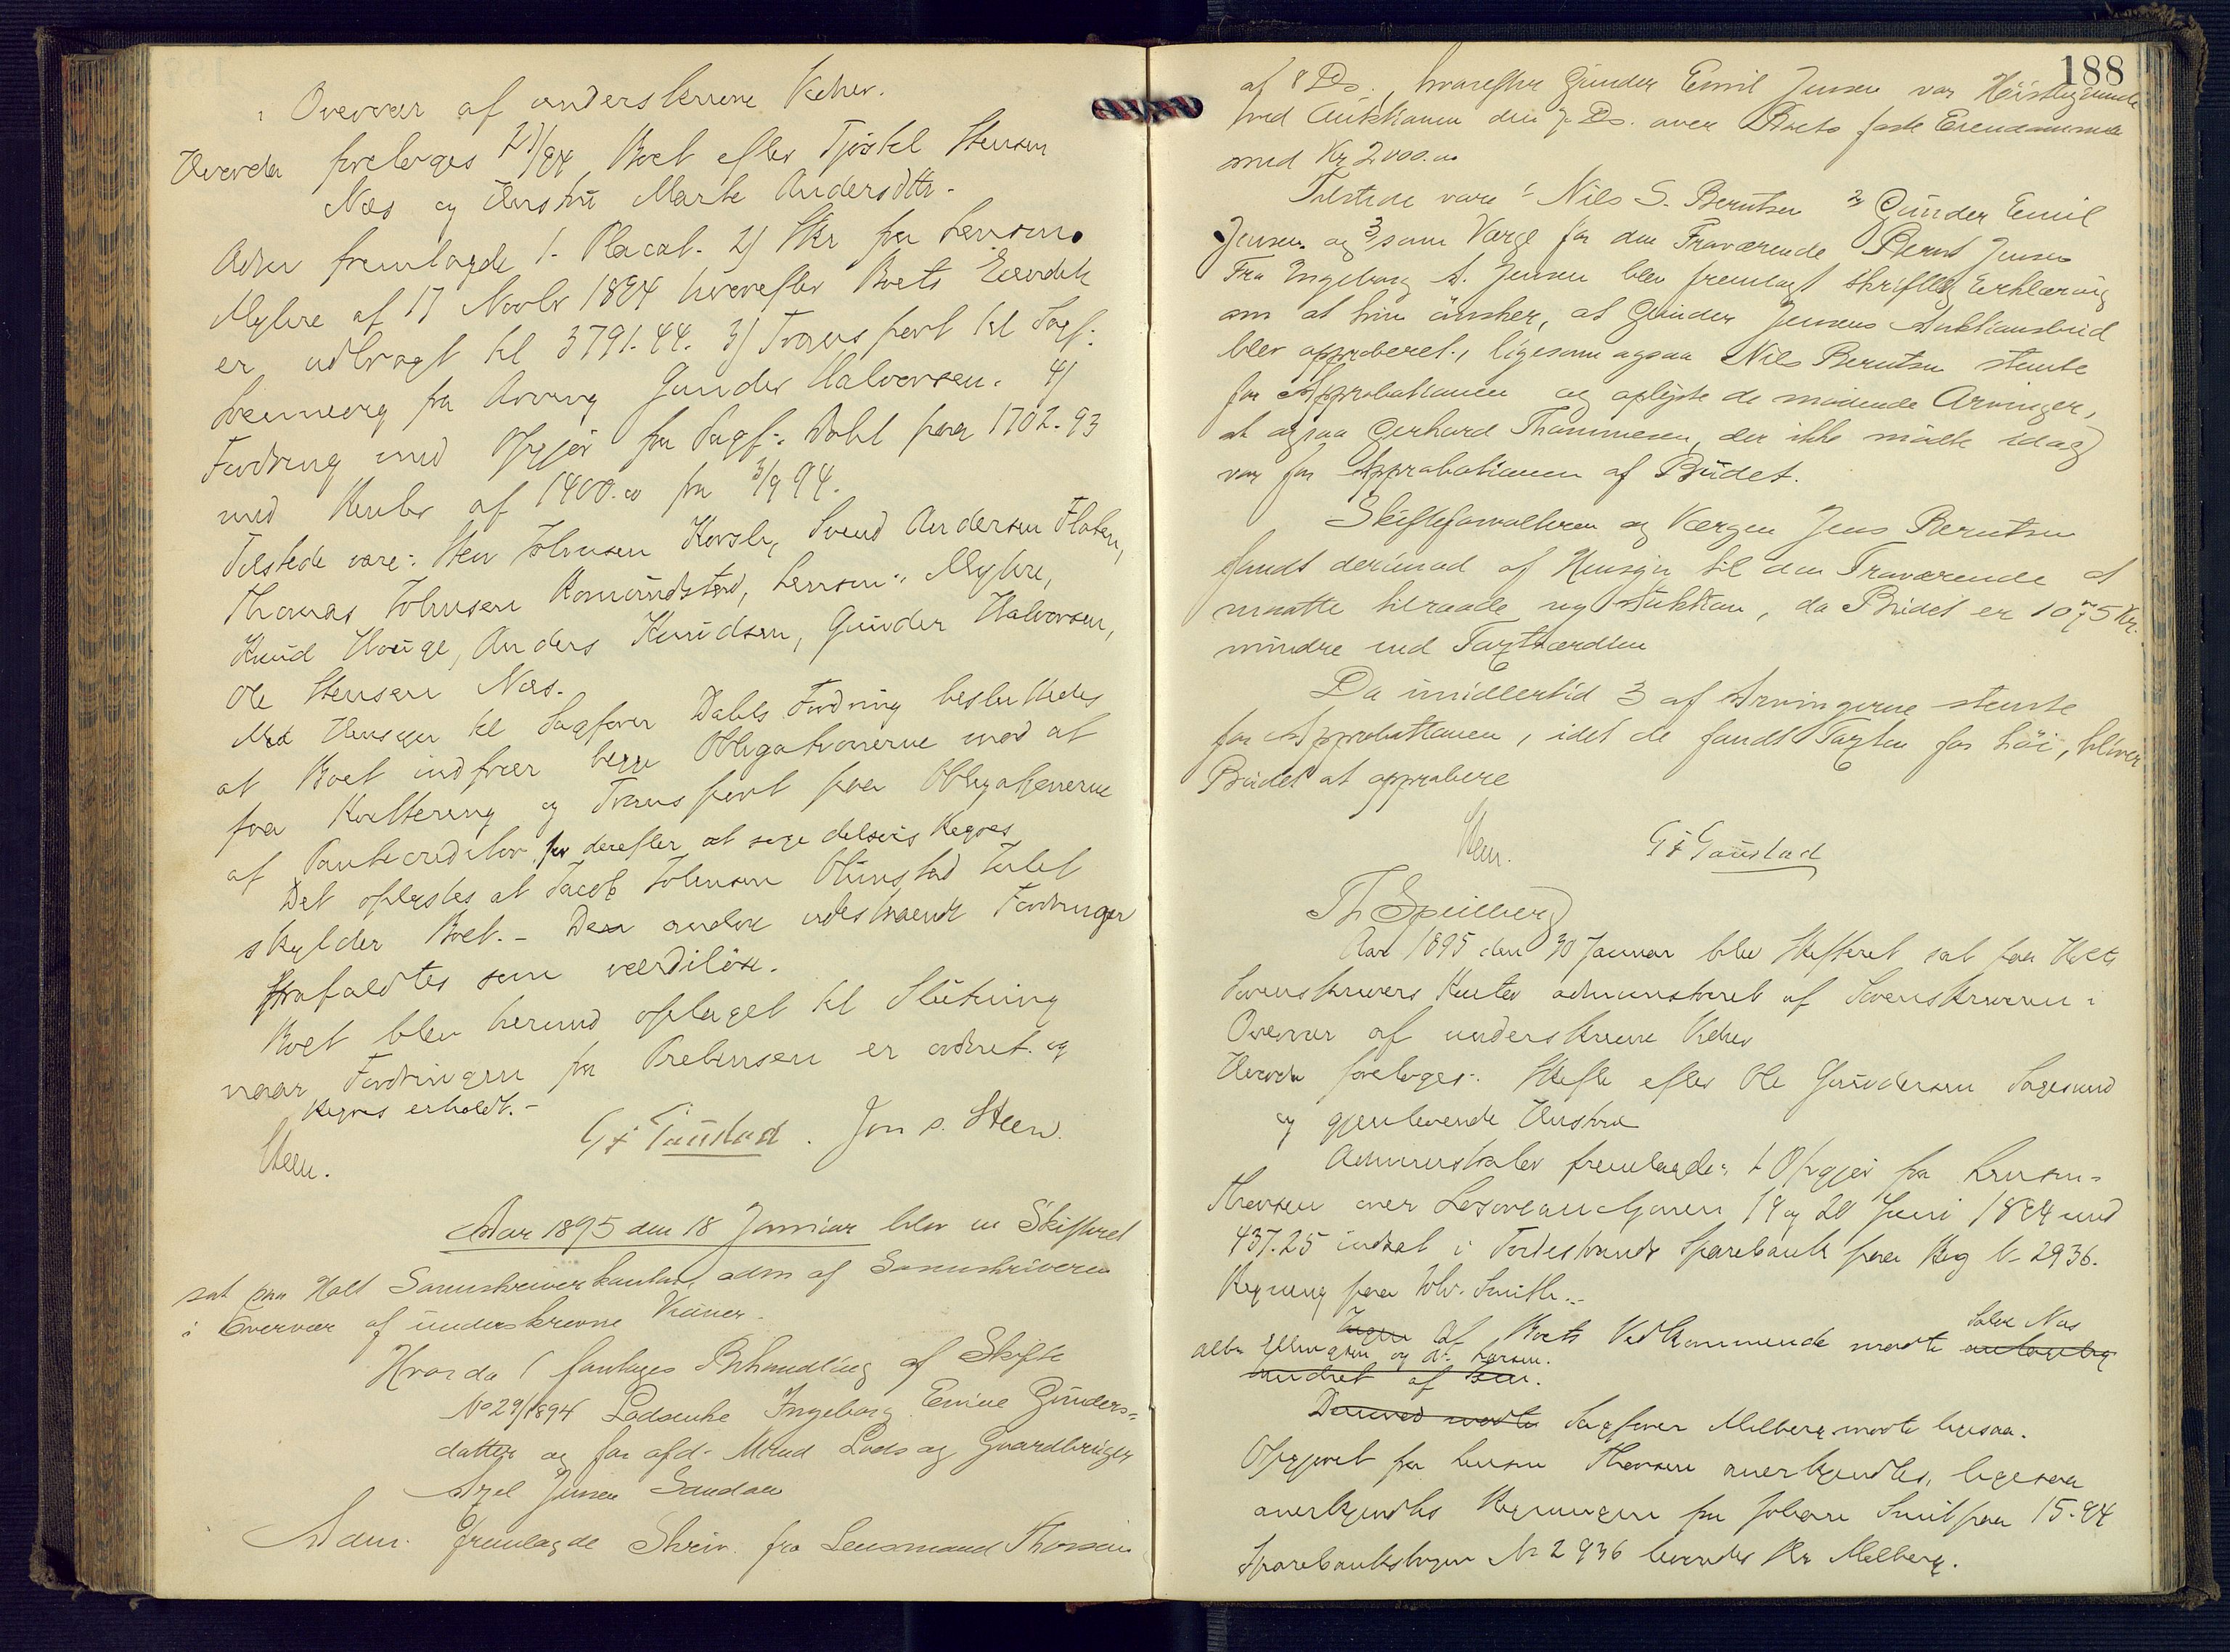 i Overvær af underskrevne Vidner.
Hvorda foretoges 21/94 Boet efter Tjøstel Stensen
Næs og Hustru Marte Andersdtr.
Adm fremlagde 1. Placat. 2) Skr fra Lensm.
Myhre af 17 Novbr 1894 hvorefter Boets Eiendele
er udbragt til 3791.44. 3) Transport til Sagf.
fra Arving Gunder Halvorsen. 4)
Fordring med Opgjør fra Sagf: Dahl paa 1702.93
med Renter af 1400.00 fra 3/9 94.
Tilstede vare: Sten Johnsen, Svend Andersen Flaten,
Thomas Johnsen Romundstad, Lensm: Myhre,
Knud Hauge, Anders Knudsen, Gunder Halvorsen,
Ole Stensen Næs.
Med Hensyn til Sagfører Dahls Fordring besluttedes
at Boet indfrier begge Obligationerne mod at
faa Kvittering og Transport paa Obligationerne
af Pantecreditor for derefter at søge delsvis Regres
Det oplystes at Jacob Johnsen Olimstad Intet
skylder Boet. – Den anden udestaaende Fordringer
frafaldtes som værdiløse.
Boet blev herved optaget til Slutning
naar Fordringen fra Prebensen er ordnet. og
Regres erholdt. –
Steen.
G F Taustad. Jon P. Steen.
Aar 1895 den 18 Januar blev en Skifteret
sat paa Holt Sorenskriverkontor, adm af Sorenskriveren
i Overvær af underskrevne Vidner.
Hvorda 1 foretoges Behandling af Skifte
No 29/1894 Lodsenke Ingeborg Emine Gunders-
datter og før afd. Mand Lods og Gaardbruger
Axel Jensen Sandøen
Adm. fremlagde Skriv. fra Lensmand Thorsen
188
af 8 Ds., hvorefter Gunder Emil Jensen var Høistbydende
ved Auktionen den 7 Ds. over Boets faste Eiendomme
med Kr 2000.00
Tilstede vare 1 Nils S. Berntsen 2) Gunder Emil
Jensen og 3) som Værge for den Fraværende Bernt Jensen
Fra Ingeborg A. Jensen blev fremlagt skriftlig Erklæring
om at hun ønsker, at Gunder Jensens Auktionsbud
blev approberet, ligesom ogsaa Nils Berntsen stemte
for Approbationen og oplyste de mødende Arvinger,
at ogsaa Gerhard Thommesen, der ikke mødte idag
var for Approbationen af Budet.
Skifteforvalteren og Værgen Jens Berntsen
fandt derimod af Hensyn til den Fraværende at
maatte tilraade ny Auktion, da Budet er 1075 Kr.
mindre end Taxtværdien
Da imidlertid 3 af Arvingerne stemte
for Approbationen, idet de fandt Taxten for høi, bliver
Budet at approbere
Steen.
G F Taustad
Th Speilberg
Aar 1895 den 30 Januar blev Skifteret sat paa Holts
Sorenskrivers Kontor administreret af Sorenskriveren i
Overvær af underskrevne Vidner
Hvorda foretoges: Skifte efter Ole Gundersen Sagesund
og gjenlevende Hustru
Administrator fremlagde: 1 Opgjør fra Lensm:
Thorsen over Løsøreauctionen 19 og 20 Juni 1894 med
437.25 indsat i Tvedestrands Sparebank paa Bog No 2936.
Regning fra Joh. Smith. –
Ingen Af Boets Vedkommende mødte Salve Næs
Alb. Ellingsen og A. Larsen.
Sagfører Melberg mødte ligesaa.
Opgjøret fra Lensm Thorsen anerkjendtes, ligesaa
anerkjendtes Regningen fra Johan Smit paa 15.94
Sparebanksbogen No 2936 leverdes Hr Melberg.